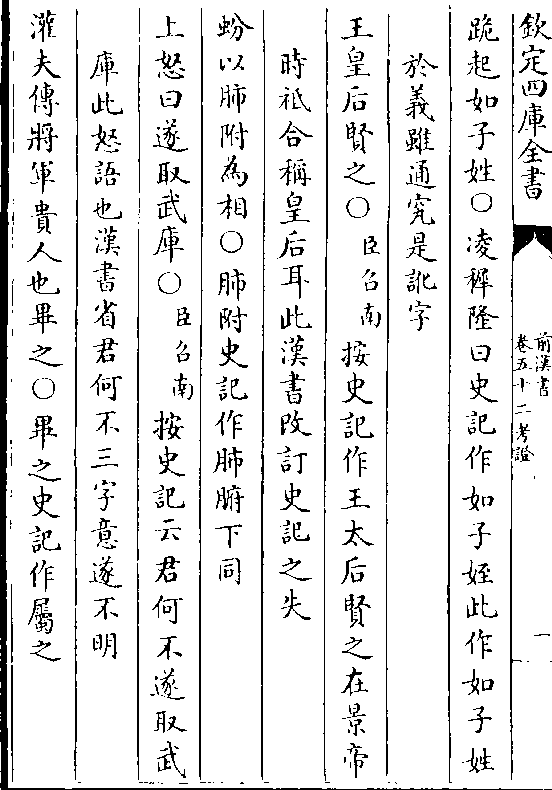 欽定四庫全書
前漢書
卷五十二考證
一
跪起如子姓○凌穉隆曰史記作如子姪此作如子姓
於義雖通究是訛字
王皇后賢之○臣召南按史記作王太后賢之在景帝
時祗合稱皇后耳此漢書改訂史記之失
蚡以肺附為相○肺附史記作肺腑下同
上怒曰遂取武庫○臣召南按史記云君何不遂取武
庫此怒語也漢書省君何不三字意遂不明
灌夫傳將軍貴人也畢之○畢之史記作屬之